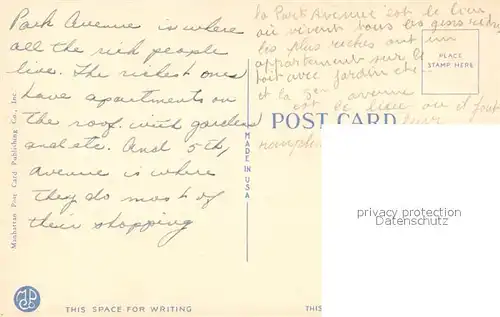 Park Avenue is where
all the rich people
live. The richest ones
have apartments on
the roof with gardens
and etc. And 5th,
avenue is where
they do most of
their shopping
la Park Avenue c'est le lieu
où vivent tous les gens riches
les plus riches ont un
appartement sur le
toit avec jardin etc
et la 5em avenue
est le lieu où il font
leur
PLACE
STAMP HERE
POST CARD
MADE IN USA
Manhattan Post Card Publishing Co., Inc.
privacy protection
Datenschutz
THIS SPACE FOR WRITING
THIS